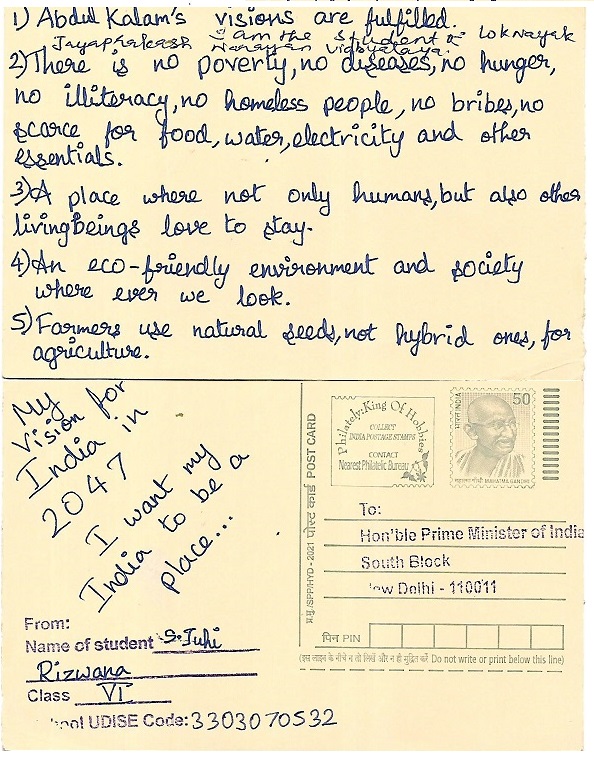 1) Abdul Kalam's visions are fulfilled.
I am the student of Lok Nayak
Jayaprakash Narayan Vidhyalaya.
2) There is no poverty, no diseases, no hunger,
no illiteracy, no homeless people, no bribes, no
scarce for food, water, electricity and other
essentials.
3) A place where not only humans, but also other
livingbeings love to stay.
4) An eco-friendly environment and society
where ever we look.
5) Farmers use natural seeds, not hybrid ones, for
agriculture.
My
vision for
India in
2047
I want my
India to be a
place...
From:
Name of student S. Juhi
Rizwana
Class VI
hool UDISE Code: 3303070532
प्र.मु./SPP/HYD - 2021 पोस्ट कार्ड POST CARD
Philately: King Of Hobbies
COLLECT
INDIA POSTAGE STAMPS
CONTACT
Nearest Philatelic Bureau
भारत INDIA
50
महात्मा गाँधी MAHATMA GANDHI
To:
Hon'ble Prime Minister of India
South Block
New Delhi - 110011
पिन PIN
(इस लाइन के नीचे न तो लिखें और न ही मुद्रित करें Do not write or print below this line)